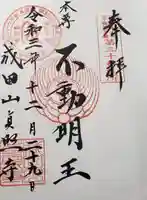 奉拝
本尊
不動明王
令和三年十二月二十九日
成田山貞照寺